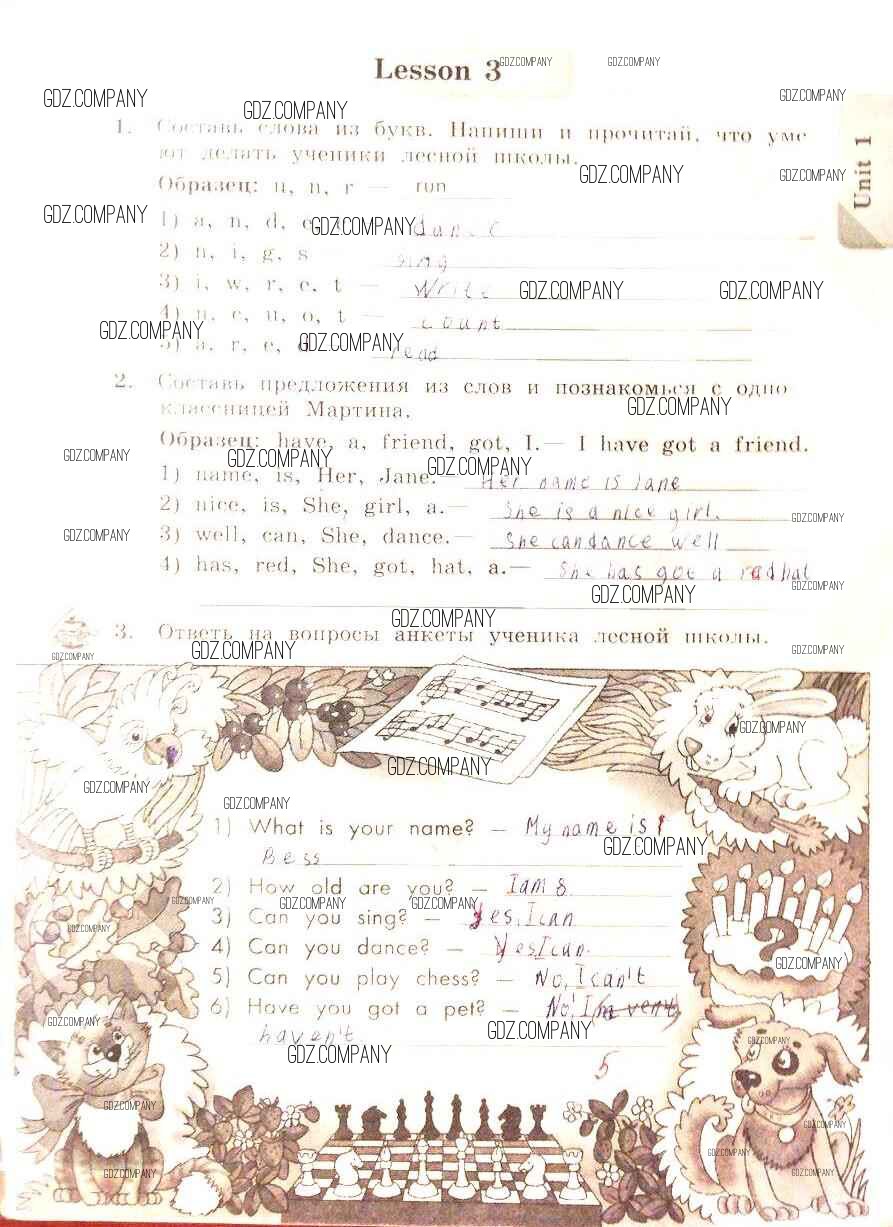 Lesson 3
Unit 1
1. Составь слова из букв. Напиши и прочитай, что уме
ют делать ученики лесной школы.
Образец: u, n, r — run
1) a, n, d, c, dance
2) n, i, g, s sing
3) i, w, r, e, t — Write
4) n, c, u, o, t — count
5) a, r, e, d read
2. Составь предложения из слов и познакомься с одно
классницей Мартина.
Образец: have, a, friend, got, I.— I have got a friend.
1) name, is, Her, Jane.— Her name is Jane
2) nice, is, She, girl, a.— She is a nice girl.
3) well, can, She, dance.— She can dance well
4) has, red, She, got, hat, a.— She has got a red hat
3. Ответь на вопросы анкеты ученика лесной школы.
1) What is your name? — My name is
Bess
2) How old are you? — I am 8
3) Can you sing? — Yes, I can
4) Can you dance? — Yes I can.
5) Can you play chess? — No, I can't
6) Have you got a pet? — No, I
haven't
5
?
GDZ.COMPANY